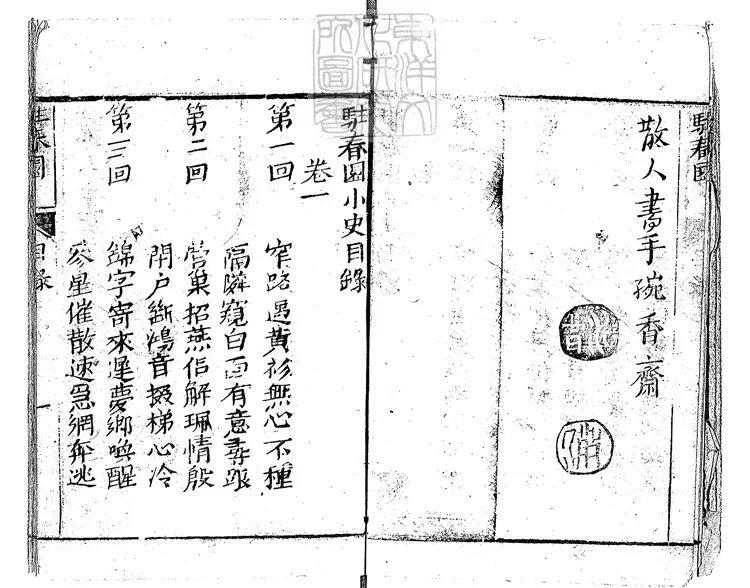 駐春園
散人書手琬香齋
駐春園小史目錄
卷一
第一回
窄路遇黃衫無心不種
隔鄰窺白面有意尋跟
第二回
營巢招燕侶解珮情殷
閉戶斷鴻音掇梯心冷
第三回
錦字寄來遲夢鄉喚醒
參星催散速急網奔逃
駐春園
目錄
一